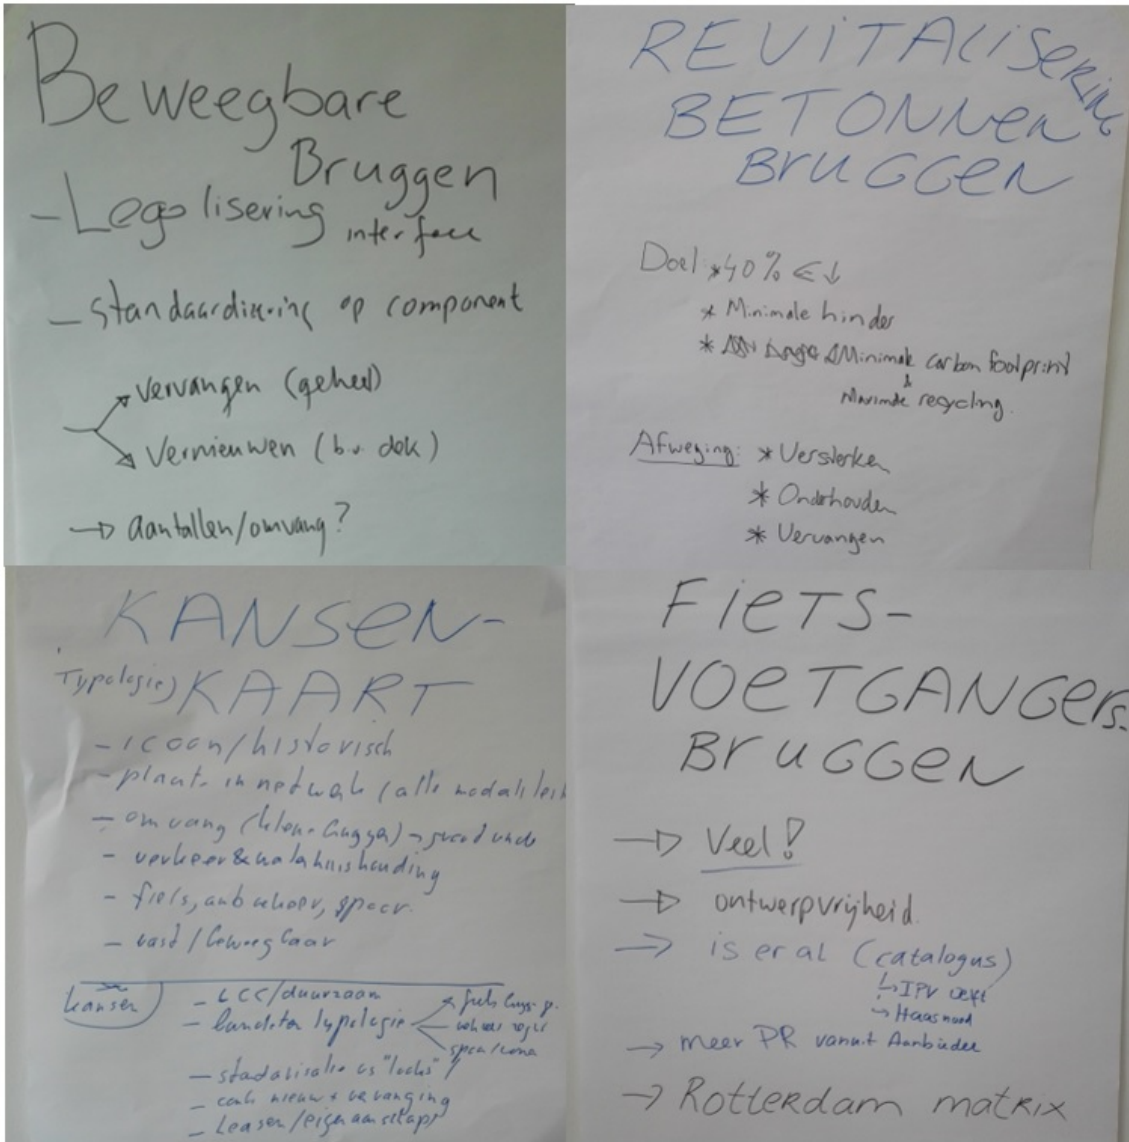 Beweegbare
Bruggen
- Legolisering interface
- Standaardisering op component
vervangen (geheel)
Vernieuwen (b.v. dek)
→ aantallen/omvang?
REVITALISERING
BETONNEN
BRUGGEN
Doel: * 40% € ↓
* Minimale hinder
* Minimale carbon footprint
&
Maximale recycling.
Afweging: * Versterken
* Onderhouden
* Vervangen
KANSEN-
Typologie) KAART
- icoon/historisch
- plaats in netwerk (alle modaliteit
- omvang
- verkeer &
- fiets,
- vast/beweegbaar
kansen
- LCC/duurzaam
- typologie
- vs "looks"
- nieuw + vervanging
- Leasen/eigenaarschap
FIETS-
VOETGANGERS-
BRUGGEN
→ Veel!
→ ontwerpvrijheid.
→ is er al (catalogus)
↳ IPV Delft
→ Haasnoot
→ meer PR vanuit Aanbieder
→ Rotterdam matrix